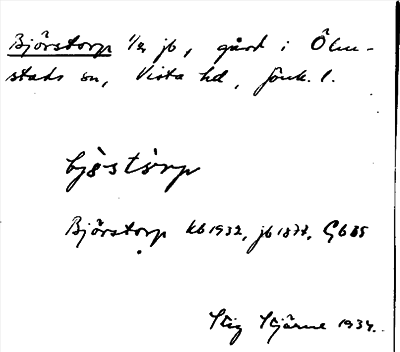 Björstorp 1/2 jb, gård i Ölm-
stads sn, Vista hd, Jönk. l.
bjòstòrp
Björstorp kb 1932, jb 1878, Gb 85
Stig Stjärne 1934.